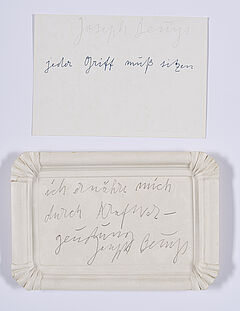 Joseph Beuys
jeder Griff muß sitzen
ich ernähre mich
durch Kraftver-
geudung
Joseph Beuys